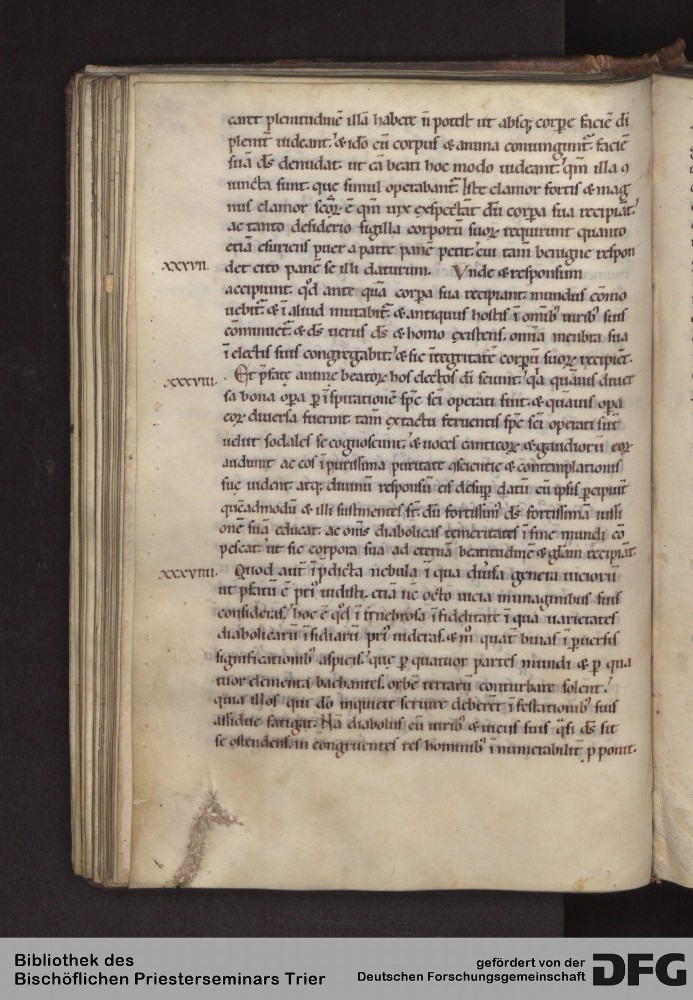 caret plenitudinē illā habere n̄ potest ut absq; corpore faciē di
plenit̄ uideant. & idō cū corpus & anima coniungunt̄. faciē
suā ds denudat. ut eā beati hoc modo uideant. qm̄ illa 9
iuncta sunt. que simul operabant̄. Iste clamor fortis & mag
nus clamor scōꝝ ē qm̄ uix exspectāt dū corpa sua recipiāt.
ac tanto desiderio sigilla corporū suoꝝ requirunt quanto
etiā esuriens puer a patre panē petit. cui tam̄ benigne respon
XXXVII. det cito panē se illi daturum. Vnde & responsum
accipiunt. qd ante quā corpa sua recipiant. mundus cōmo
uebit̄. & ī aliud mutabit̄. & antiquus hostis ī omīb; uirib; suis
cōmouet̄. & ds uerus ds & homo existens. omīa menbra sua
ī electis suis congregabit. & sic ītegritatē corpū suoꝝ recipiēt.
XXXVIII. Et p̄fatę anime beatoꝝ hos electos dī sciunt. qa quāuis diuer
sa bona opa p īspirationē spc sci operati sint. & quāuis opa
eoꝝ diuersa fuerint. tam̄ ex tactu feruentis spc sci operati sūt
uelut sodales se cognoscunt. & uoces canticoꝝ & gaudiorū eoꝝ
audiunt ac eos ī purissima puritate 9scientie & contemplationis
sue uident. atq; diuinū responsū eis desup datū cū ipsis pcipiūt
quēadmodū & illi sustinentes st. dū fortissim; ds fortissimā iussi
onē suā educat. ac om̄s diabolicas temeritates ī fine mundi cō
pescat. ut sic corpora sua ad eternā beatitudinē & glām recipiāt.
XXXVIIII. Quod aut̄ ī p̄dicta nebula ī qua diūsa genera uiciorū
ut p̄fatū ē pri; uidisti. etiā nc̄ octo uicia in imaginibus suis
consideras. hoc ē qd ī tenebrosa īfidelitate ī qua uarietates
diabolicarū īsidiarū pri; uideras. & m̊ quat̄ binas ī puersis
significationib; aspicis. que p quatuor partes mundi & p qua
tuor elementa bachantes. orbē terrarū conturbare solent.
quia illos qui dō inquiete seruire deberet īfestationib; suis
assidue fatigat. Nā diabolus cū uirib; & uicus suis qsi ds sit
se ostendens. in congruentes res hominib; innumerabilit̄ pponit.
Bibliothek des
Bischöflichen Priesterseminars Trier
gefördert von der
Deutschen Forschungsgemeinschaft
DFG